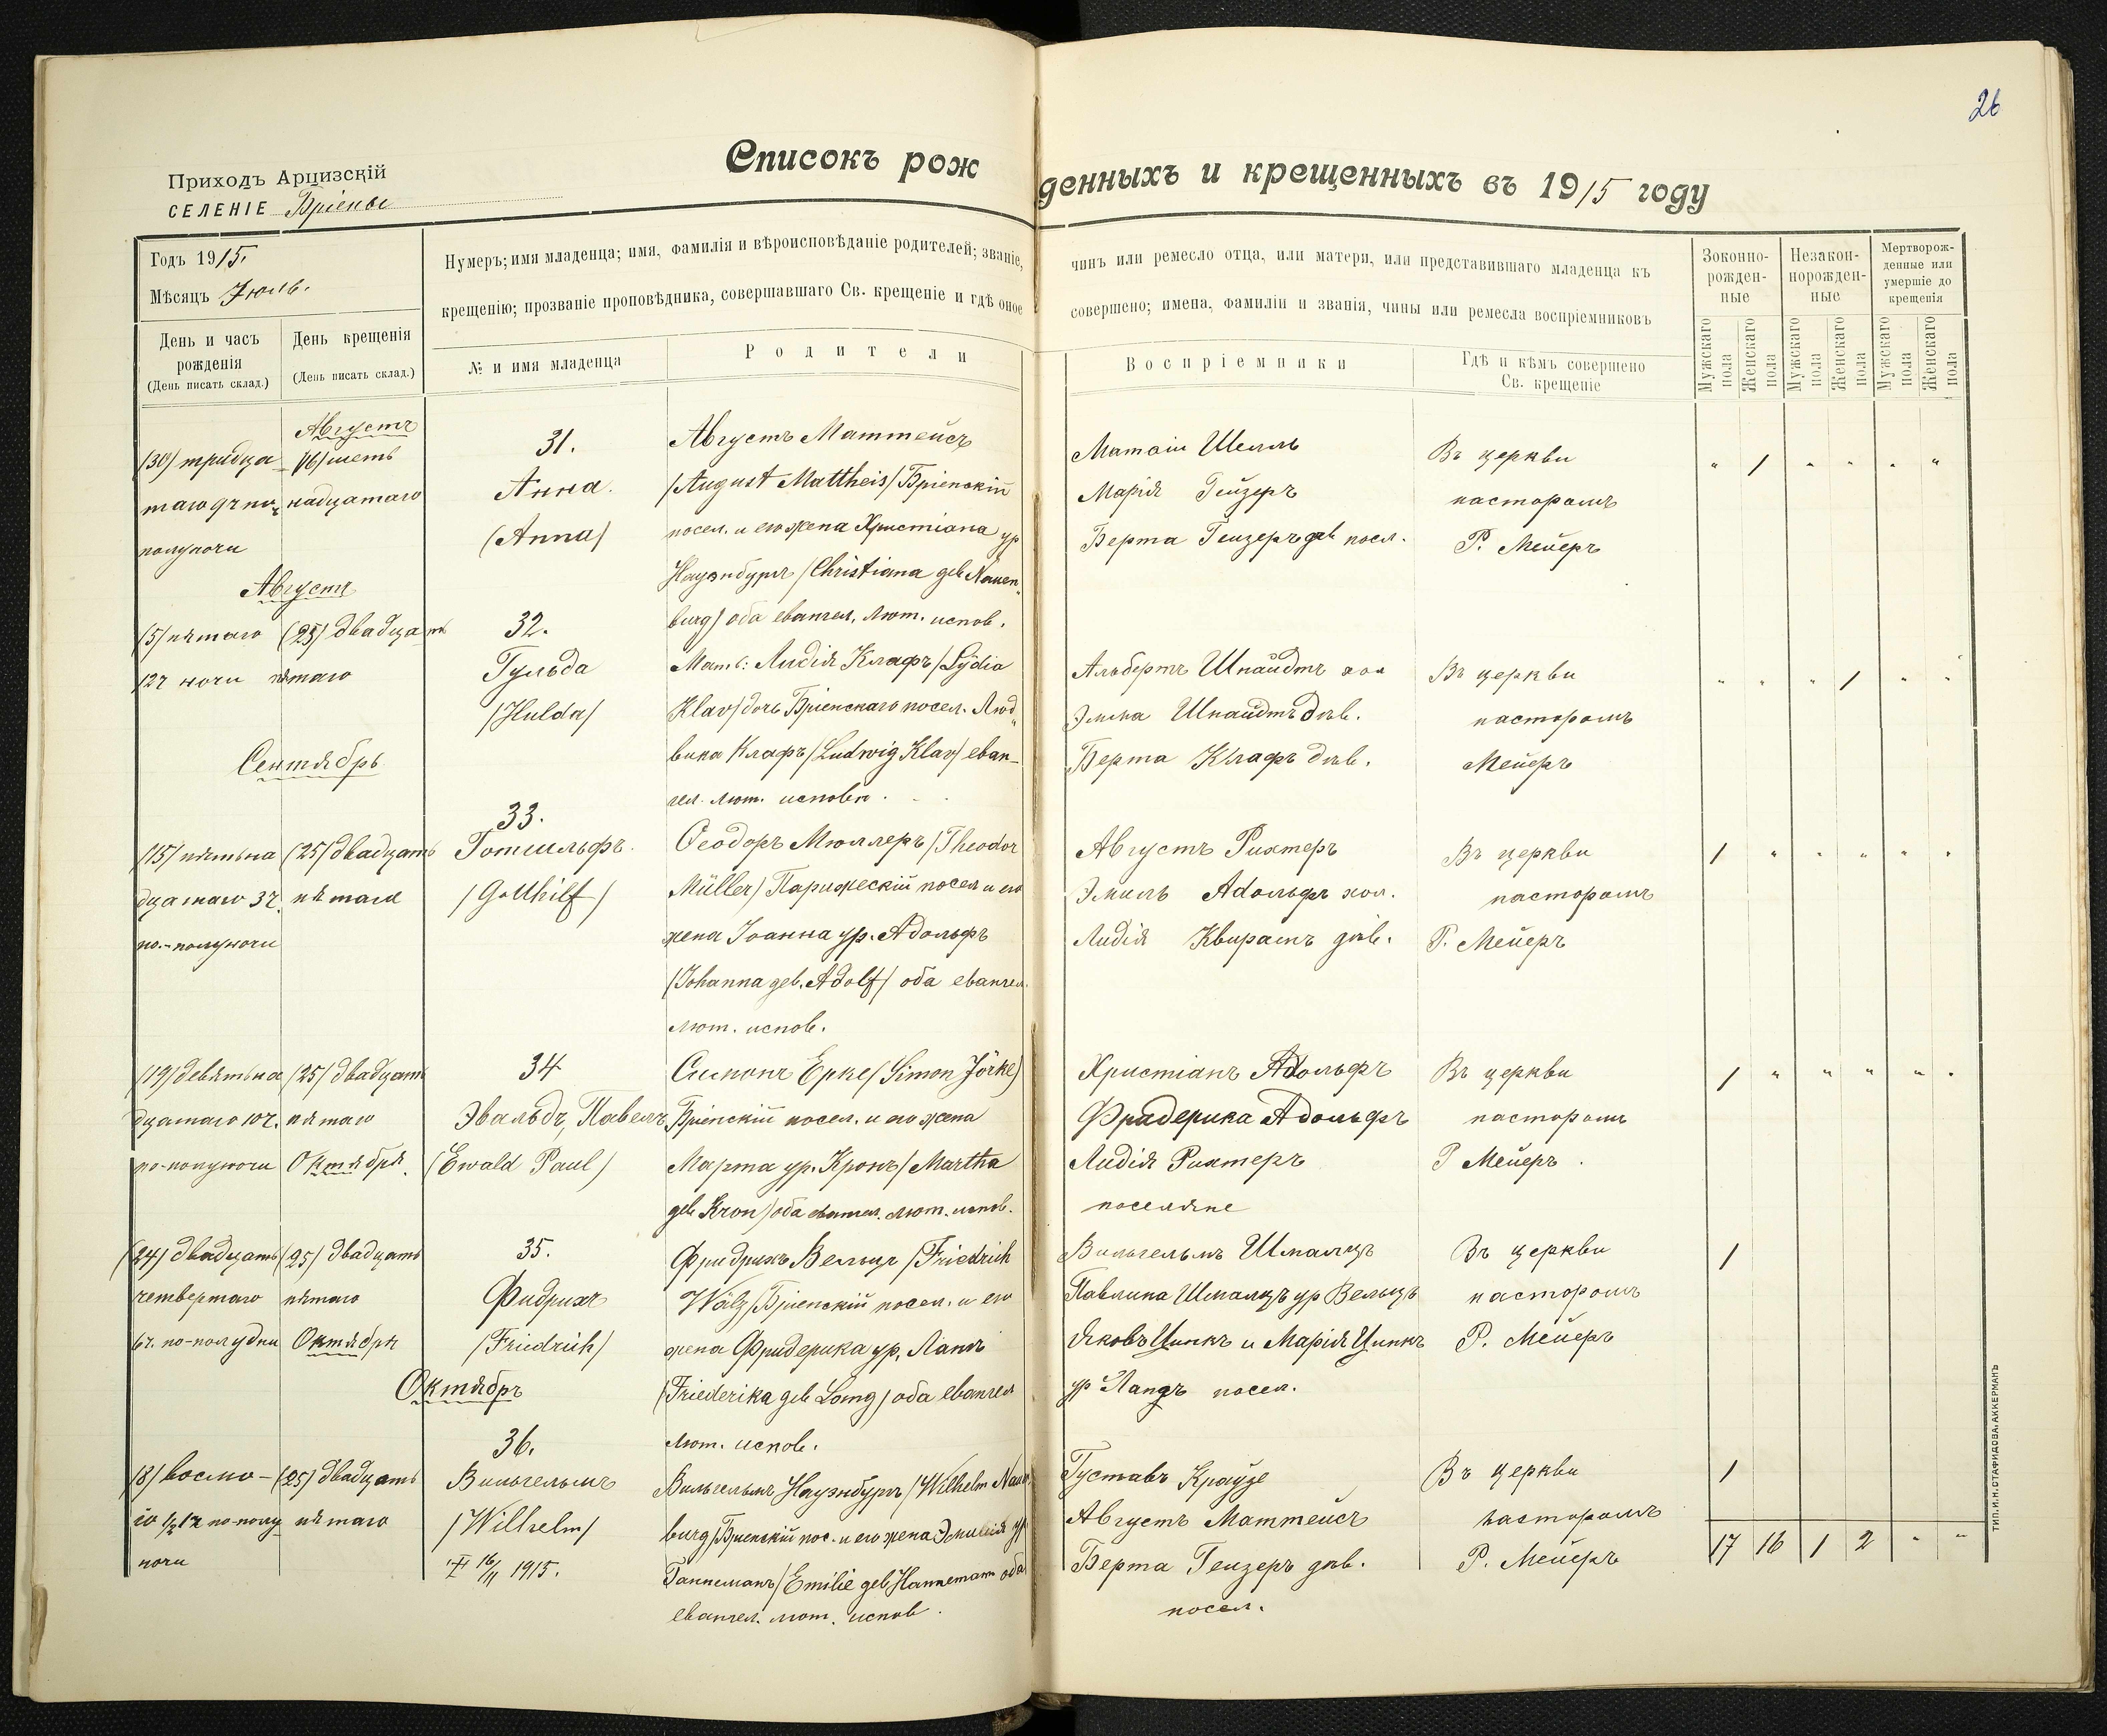 26
Приходъ Арцизскій
СЕЛЕНІЕ Бріены
Списокъ рожденныхъ и крещенныхъ въ 1915 году
Годъ 1915.
Мѣсяцъ Іюль.
День и часъ рожденія
(День писать склад.)
День крещенія
(День писать склад.)
Нумеръ; имя младенца; имя, фамилія и вѣроисповѣданіе родителей; званіе, чинъ или ремесло отца, или матери, или представившаго младенца къ
крещенію; прозваніе проповѣдника, совершавшаго Св. крещеніе и гдѣ оное совершено; имена, фамиліи и званія, чины или ремесла воспріемниковъ
№ и имя младенца
Родители
Воспріемники
Гдѣ и кѣмъ совершено
Св. крещеніе
Зоконно-
рожден-
ные
Незакон-
норожден-
ные
Мертворож-
денные или
умершіе до
крещенія
Мужскаго пола
Женскаго пола
Мужскаго пола
Женскаго пола
Мужскаго пола
Женскаго пола
Августъ
(30) тридца-
таго 9ч по-
полуночи
(16) шест-
надцатаго
31.
Анна.
(Anna)
Августъ Маттейсъ
(August Mattheis) Бріенскій
посел. и его жена Христіана ур
Науэнбургъ (Christiana geb Nauen-
burg) оба евангел. лют. испов.
Матѳій Шелль
Марія Гейзеръ
Берта Гейзеръ дѣв посел.
Въ церкви
пасторомъ
Р. Мейеръ
" / " " " "
Августъ
(5) пятаго
12ч ночи
(25) двадцать
пятаго
32.
Гульда
(Hulda)
Мать: Лидія Клафъ (Lydia
Klav) дочь Бріенскаго посел. Люд-
вика Клафъ (Ludwig Klav) еван-
гел. лют. исповѣ.
Альбертъ Шпайдтъ хол
Эмма Шпайдтъ дѣв.
Берта Клафъ дѣв.
Въ церкви
пасторомъ
Мейеръ
" " " / " "
Сентябрь
(15) пятьна
дцатаго 3ч.
по-полуночи
(25) двадцать
пятаго
33.
Готгильфъ.
(Gotthilf)
Ѳеодоръ Мюллеръ (Theodor
Müller) Парижескій посел и его
жена Іоанна ур. Адольфъ
(Johanna geb. Adolf) оба евангел.
лют. испов.
Августъ Рихтеръ
Эмиль Адольфъ хол.
Лидія Квирамъ дѣв.
Въ церкви
пасторомъ
Р. Мейеръ
/ " " " " "
(19) девятьна
дцатаго 10ч.
по-полуночи
(25) двадцать
пятаго
Октября.
34
Эвальдъ, Павелъ
(Ewald Paul)
Симонъ Ерке (Simon Jörke)
Бріенскій посел. и его жена
Марта ур. Кронъ (Martha
geb Kron) оба евангел. лют. испов.
Христіанъ Адольфъ
Фрадерика Адольфъ
Лидія Рихтеръ
поселяне
Въ церкви
пасторомъ
Р Мейеръ.
/ " " " " "
(24) двадцать
четвертаго
6ч. по-полудни
(25) двадцать
пятаго
Октября
35.
Фидрихъ
(Friedrich)
Фридрихъ Вельцъ (Friedrich
Wälz) Бріенскій посел. и его
жена Фридерика ур. Лангъ
(Friederika geb Lang) оба евангел
лют. испов.
Вильгельмъ Шмальцъ
Павлина Шмальцъ ур Вельцъ
Яковъ Цинкъ и Марія Цинкъ
ур Лангъ посел.
Въ церкви
пасторомъ
Р. Мейеръ
/
Октябрь
(8) восмо-
го ½ 1ч по-полу
ночи
(25) двадцать
пятаго
36.
Вильгельмъ
(Wilhelm)
16/11 1915.
Вильгельмъ Науэнбургъ (Wilhelm Nauen-
burg) Бріенскій пос. и его жена Эмилія ур
Ганнеманъ (Emilie geb Hannemann оба
евангел. лют. испов.
Густавъ Краузе
Августъ Маттейсъ
Берта Гейзеръ дѣв.
посел.
Въ церкви
пасторомъ
Р. Мейеръ
/
17 16 1 2 " "
ТИП. И. Н. СТАФИДОВА. АККЕРМАНЪ